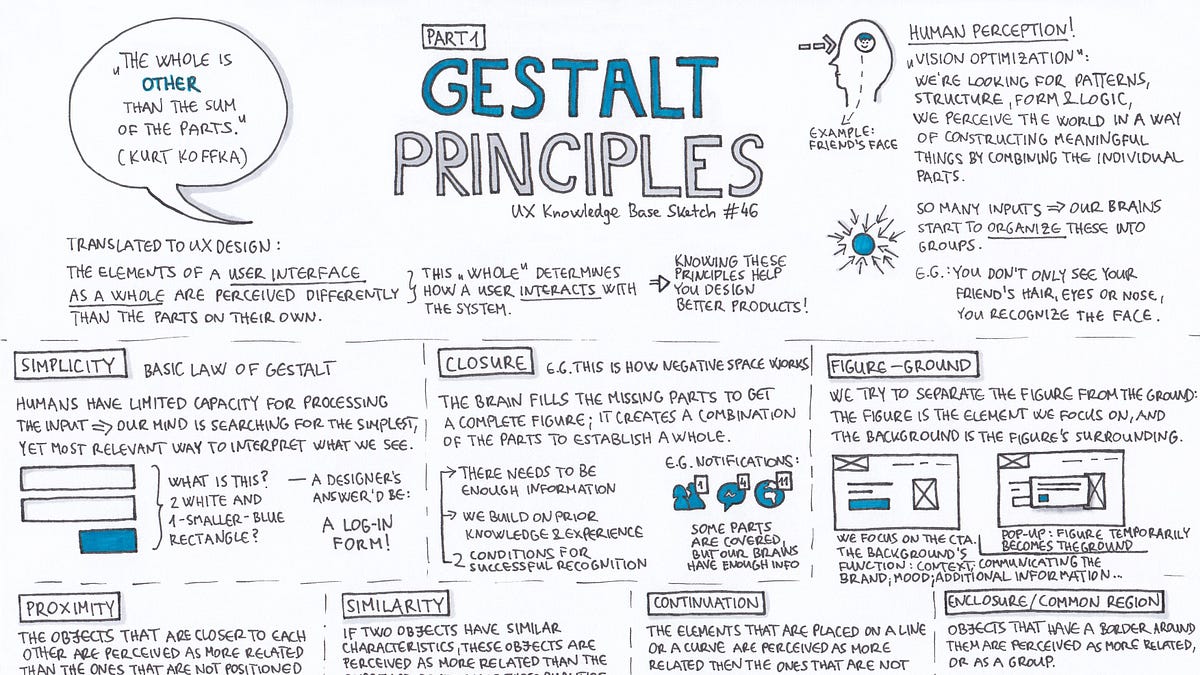 „THE WHOLE IS
OTHER
THAN THE SUM
OF THE PARTS."
(KURT KOFFKA)
PART 1
GESTALT
PRINCIPLES
UX Knowledge Base Sketch #46
EXAMPLE:
FRIEND'S FACE
HUMAN PERCEPTION!
„VISION OPTIMIZATION":
WE'RE LOOKING FOR PATTERNS,
STRUCTURE, FORM & LOGIC,
WE PERCEIVE THE WORLD IN A WAY
OF CONSTRUCTING MEANINGFUL
THINGS BY COMBINING THE INDIVIDUAL
PARTS.
SO MANY INPUTS ⇒ OUR BRAINS
START TO ORGANIZE THESE INTO
GROUPS.
E.G.: YOU DON'T ONLY SEE YOUR
FRIEND'S HAIR, EYES OR NOSE,
YOU RECOGNIZE THE FACE.
TRANSLATED TO UX DESIGN:
THE ELEMENTS OF A USER INTERFACE
AS A WHOLE ARE PERCEIVED DIFFERENTLY
THAN THE PARTS ON THEIR OWN.
THIS „WHOLE" DETERMINES
HOW A USER INTERACTS WITH
THE SYSTEM.
KNOWING THESE
PRINCIPLES HELP
YOU DESIGN
BETTER PRODUCTS!
SIMPLICITY
BASIC LAW OF GESTALT
HUMANS HAVE LIMITED CAPACITY FOR PROCESSING
THE INPUT ⇒ OUR MIND IS SEARCHING FOR THE SIMPLEST,
YET MOST RELEVANT WAY TO INTERPRET WHAT WE SEE.
WHAT IS THIS?
2 WHITE AND
1-SMALLER-BLUE
RECTANGLE?
— A DESIGNER'S
ANSWER'D BE:
A LOG-IN
FORM!
CLOSURE
E.G. THIS IS HOW NEGATIVE SPACE WORKS
THE BRAIN FILLS THE MISSING PARTS TO GET
A COMPLETE FIGURE; IT CREATES A COMBINATION
OF THE PARTS TO ESTABLISH A WHOLE.
THERE NEEDS TO BE
ENOUGH INFORMATION
WE BUILD ON PRIOR
KNOWLEDGE & EXPERIENCE
2 CONDITIONS FOR
SUCCESSFUL RECOGNITION
E.G. NOTIFICATIONS:
1
4
11
SOME PARTS
ARE COVERED,
BUT OUR BRAINS
HAVE ENOUGH INFO
FIGURE-GROUND
WE TRY TO SEPARATE THE FIGURE FROM THE GROUND:
THE FIGURE IS THE ELEMENT WE FOCUS ON, AND
THE BACKGROUND IS THE FIGURE'S SURROUNDING.
WE FOCUS ON THE CTA.
THE BACKGROUND'S
FUNCTION: CONTEXT, COMMUNICATING THE
BRAND; MOOD; ADDITIONAL INFORMATION...
POP-UP: FIGURE TEMPORARILY
BECOMES THE GROUND
PROXIMITY
THE OBJECTS THAT ARE CLOSER TO EACH
OTHER ARE PERCEIVED AS MORE RELATED
THAN THE ONES THAT ARE NOT POSITIONED
SIMILARITY
IF TWO OBJECTS HAVE SIMILAR
CHARACTERISTICS, THESE OBJECTS ARE
PERCEIVED AS MORE RELATED THAN THE
CONTINUATION
THE ELEMENTS THAT ARE PLACED ON A LINE
OR A CURVE ARE PERCEIVED AS MORE
RELATED THEN THE ONES THAT ARE NOT
ENCLOSURE/COMMON REGION
OBJECTS THAT HAVE A BORDER AROUND
THEM ARE PERCEIVED AS MORE RELATED,
OR AS A GROUP.